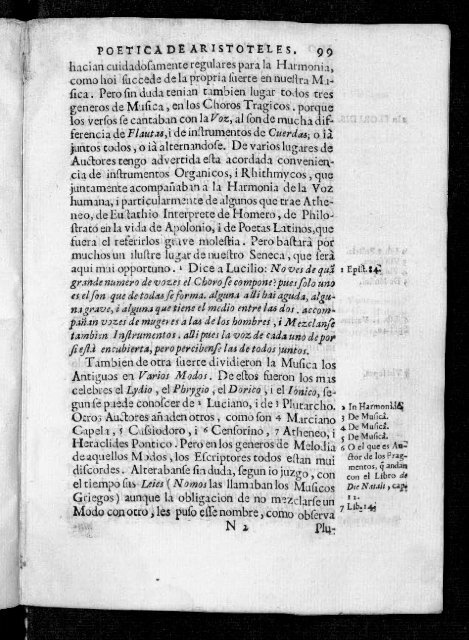 POETICA DE ARISTOTELES. 99
hacian cuidadosamente regulares para la Harmonia,
como hoi succede de la propria suerte en nuestra Mu-
sica. Pero sin duda tenian tambien lugar todos tres
generos de Musica, en los Choros Tragicos. porque
los versos se cantaban con la Voz, al son de mucha dif-
ferencia de Flautas, i de instrumentos de Cuerdas, o ià
juntos todos, o ià alternandose. De varios lugares de
Auctores tengo advertida esta acordada convenien-
cia de instrumentos Organicos, i Rhithmycos, que
juntamente acompañaban a la Harmonia de la Voz
humana, i particularmente de algunos que trae Athe-
neo, de Eustathio Interprete de Homero, de Philo-
strato en la vida de Apolonio, i de Poetas Latinos, que
fuera el referirlos grave molestia. Pero bastarà por
muchos un ilustre lugar de nuestro Seneca, que serà
aqui mai opportuno. 1 Dice a Lucilio: No ves de quã
grande numero de vozes el Choro se compone? pues solo uno
es el son que de todas se forma. alguna alli hai aguda, algu-
na grave, é alguna que tiene el medio entre las dos. accom-
pañan vozes de mugeres a las de los hombres, i Mezclanse
tambien Instrumentos. alli pues la voz de cada uno de por
si està encubierta, pero percibense las de todos juntos.
Tambien de otra suerte dividieron la Musica los
Antiguos en Varios Modos. De estos fueron los mas
celebres el Lydio, el Phrygio, el Dorico, i el Ionico, se-
gun se puede conoscer de 2 Luciano, i de 3 Plutarcho.
Otros Auctores añaden otros, como son 4 Marciano
Capela, 5 Cassiodoro, i 6 Censorino, 7 Atheneo, i
Heraclides Pontico. Pero en los generos de Melodia
de aquellos Modos, los Escriptores todos estan mui
discordes. Alterabanse sin duda, segun io juzgo, con
el tiempo sus Leies (Nomos las llamaban los Musicos
Griegos) aunque la obligacion de no mezclarse un
Modo con otro, les puso esse nombre, como observa
N 2 Plu-
1 Epist. 84.
2 In Harmonidẽ
3 De Musicâ.
4 De Musicâ.
5 De Musicâ.
6 O el que es Au-
ctor de los Frag-
mentos, q̃ andan
con el Libro de
Die Natali, cap.
12.
7 Lib. 14.